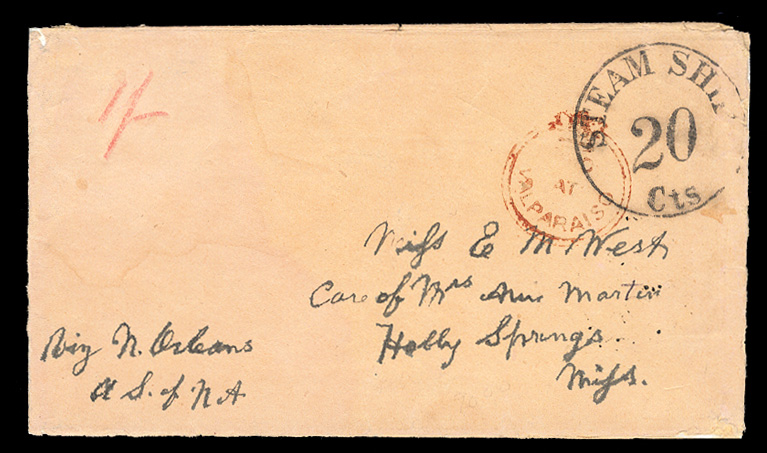 1/-
STEAM SHIP
20
Cts
AT
VALPARAISO
Miss E M West
Care of Mrs Ann Martin
Holly Springs
Miss.
Via N. Orleans
U S. of N A